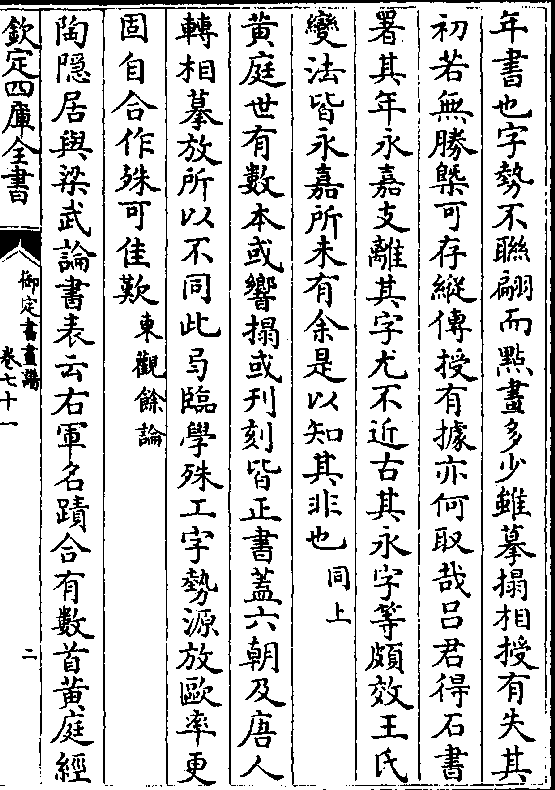 年書也字勢不聯翩而㸃畫多少雖摹搨相授有失其
初若無勝槩可存縱傳授有據亦何取哉吕君得石書
署其年永嘉支離其字尤不近古其永字等頗效王氏
變法皆永嘉所未有余是以知其非也同上
黄庭世有數本或響搨或刋刻皆正書蓋六朝及唐人
轉相摹放所以不同此局臨學殊工字勢源放歐率更
固自合作殊可佳歎東觀餘論
陶隱居與梁武論書表云右軍名蹟合有數首黄庭經
欽定四庫全書
御定書畫譜
卷七十一
二